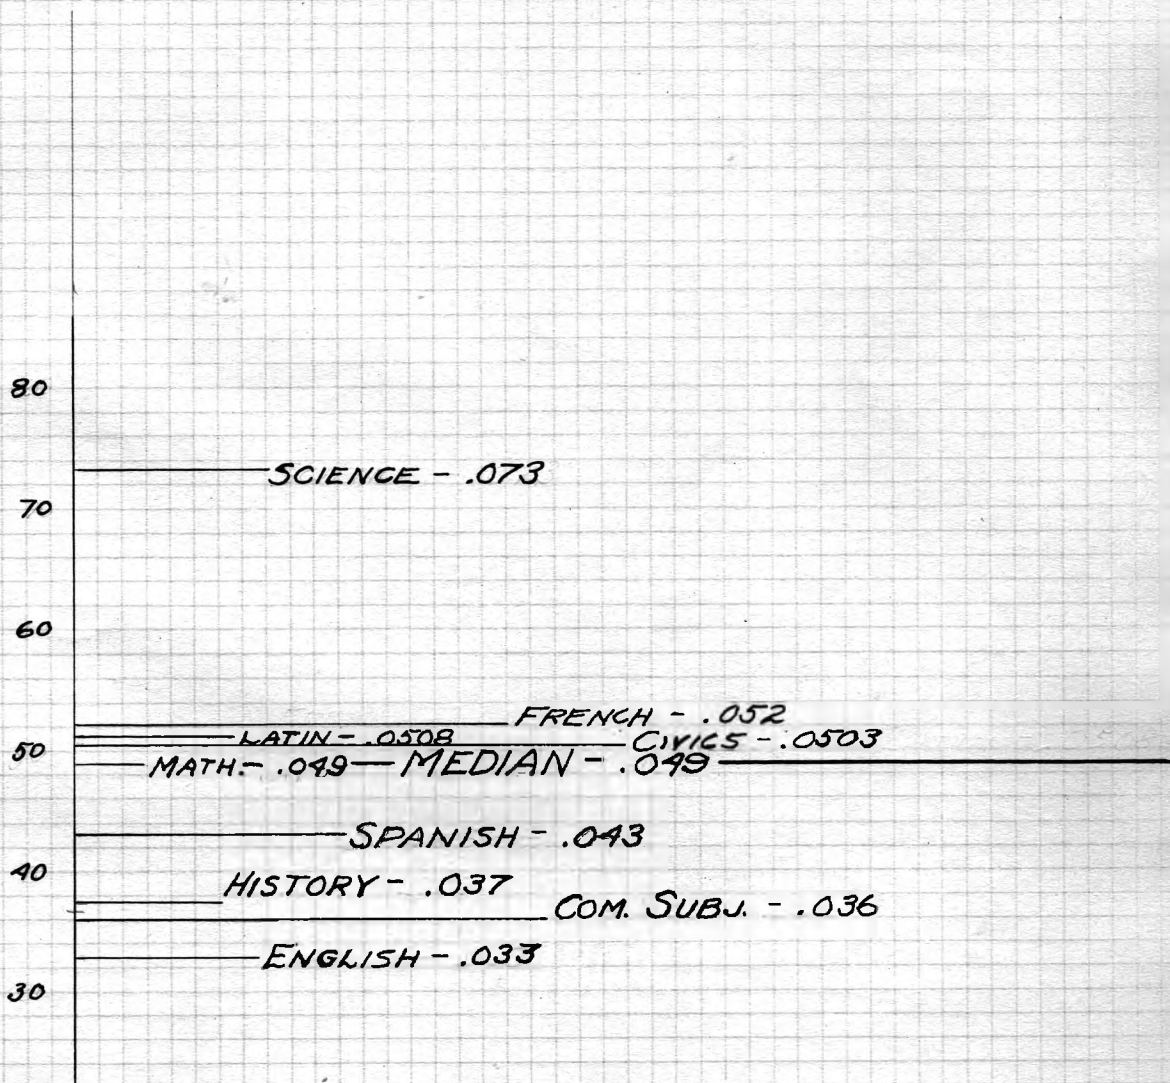 80
SCIENCE - .073
70
60
FRENCH - .052
LATIN - .0508
CIVICS - .0503
50
MATH. - .049 — MEDIAN - .049
SPANISH - .043
40
HISTORY - .037
COM. SUBJ. - .036
ENGLISH - .033
30